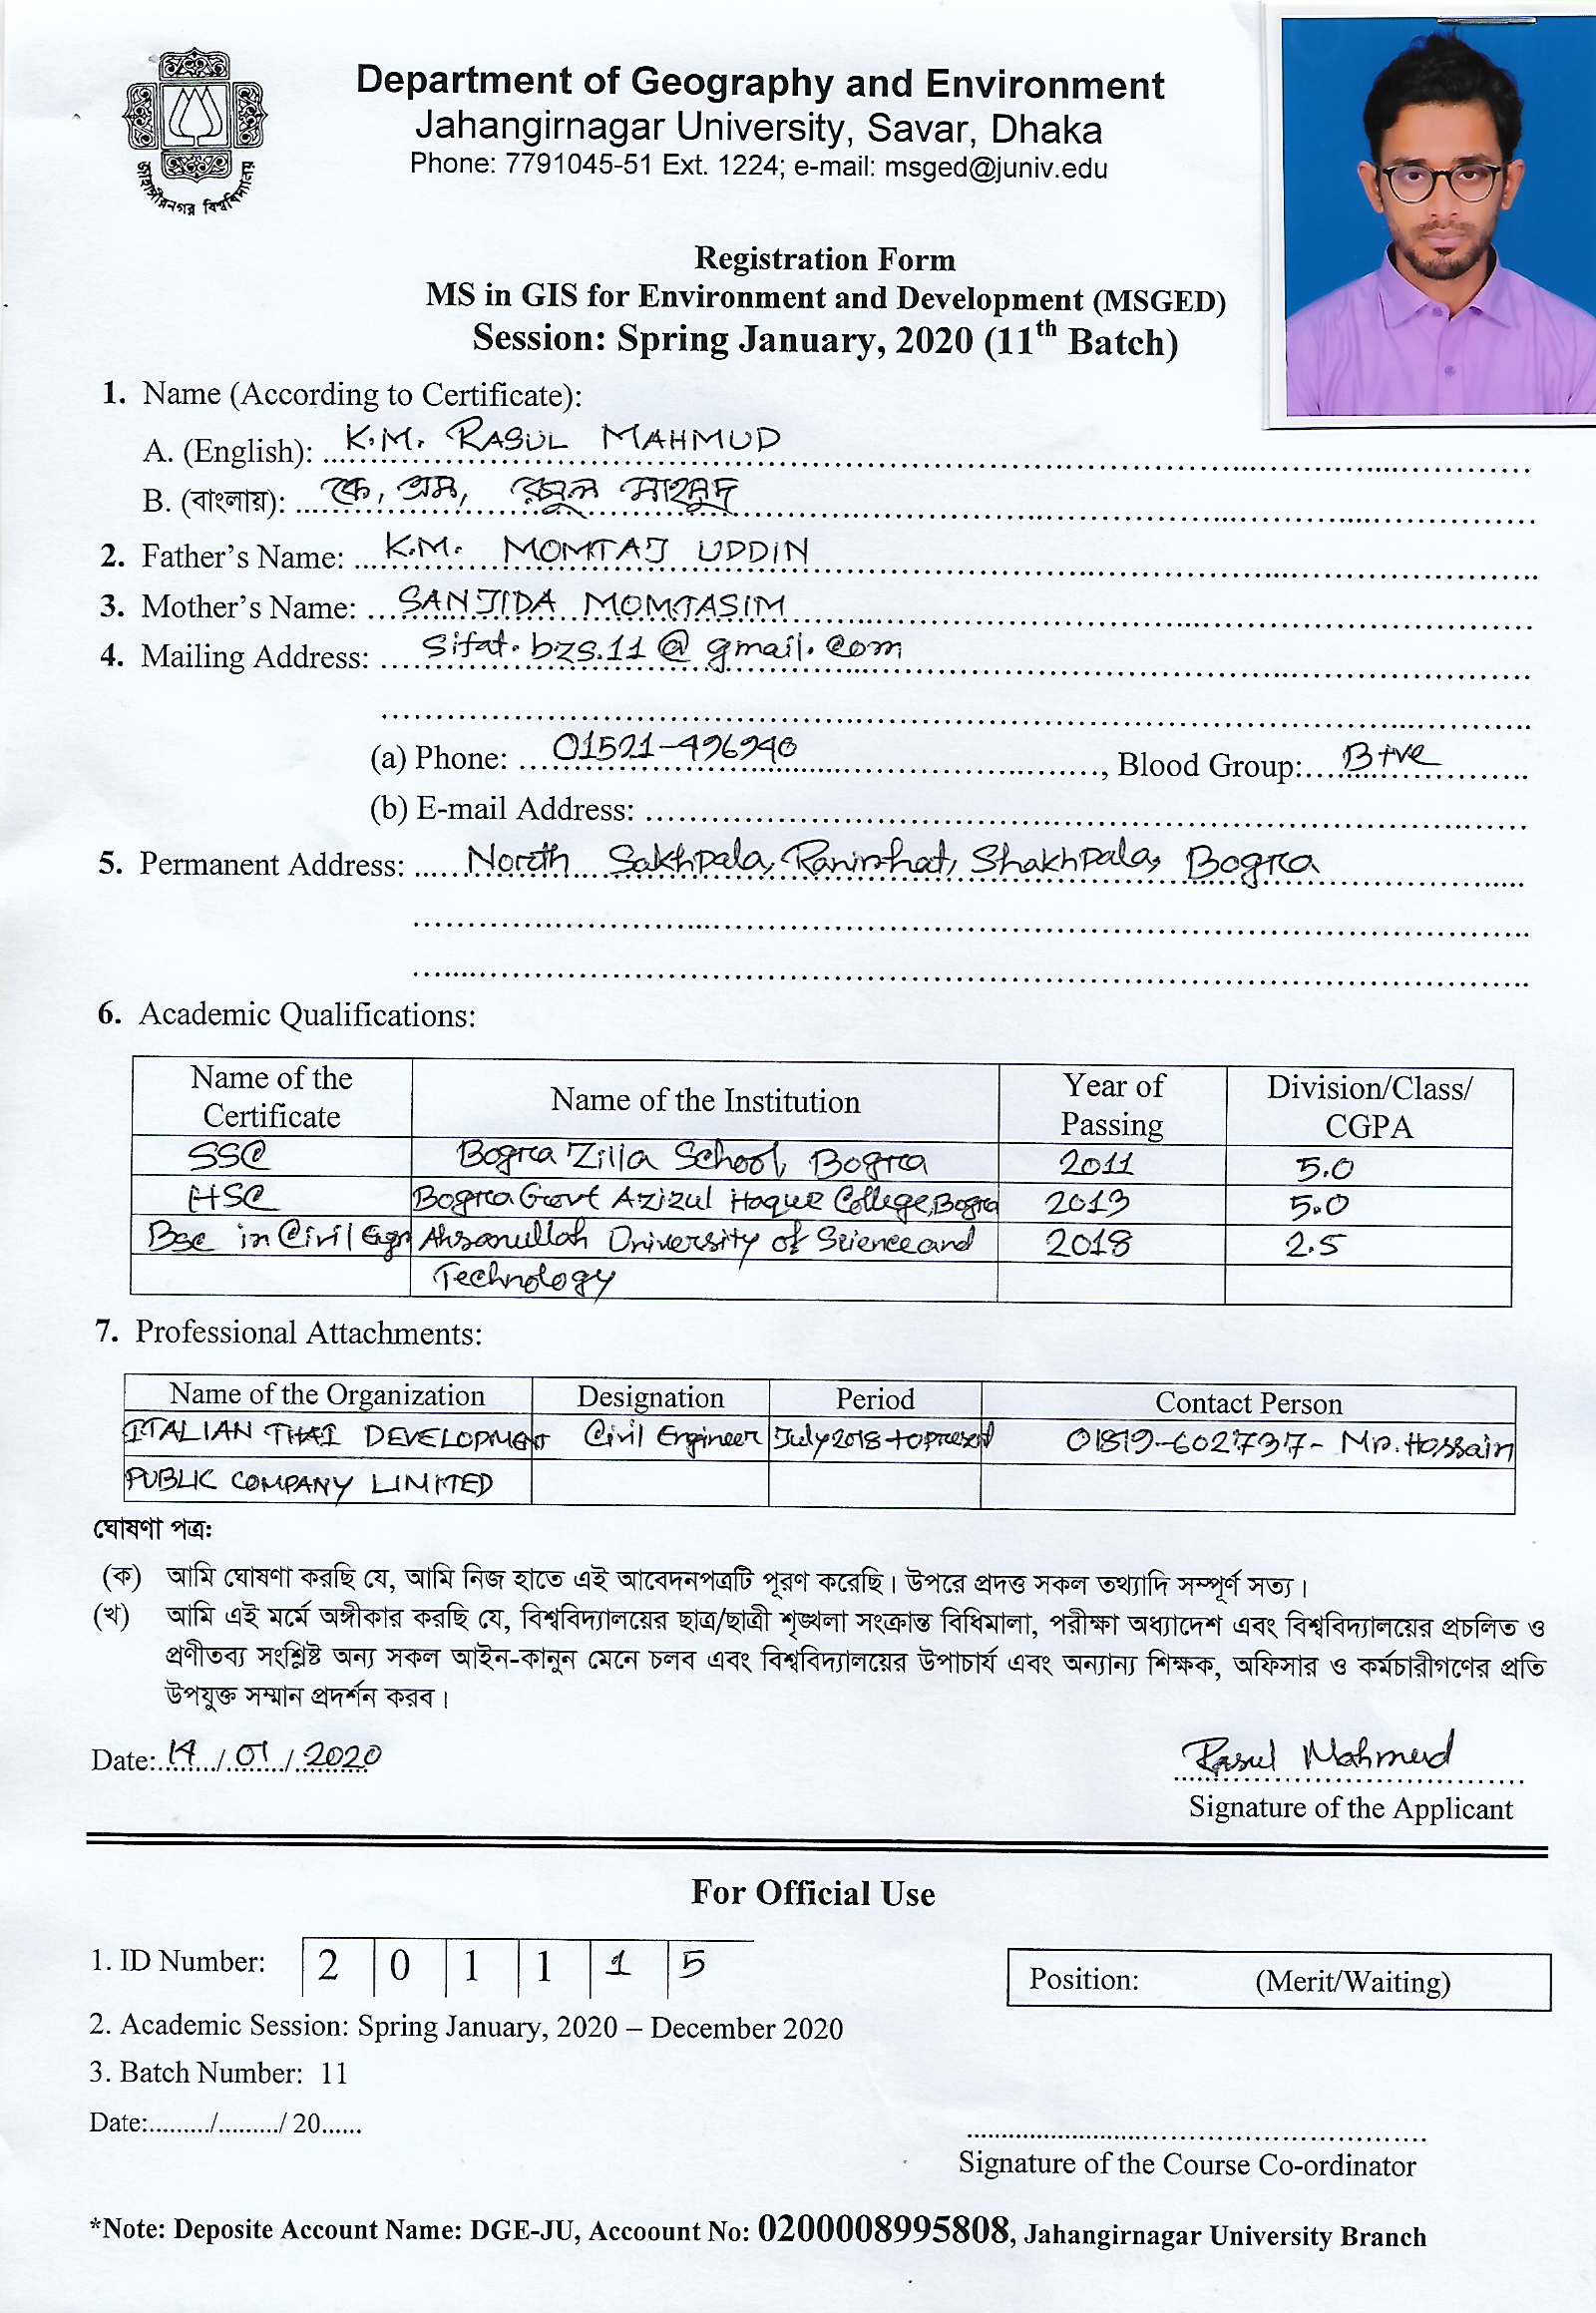 Department of Geography and Environment
Jahangirnagar University, Savar, Dhaka
Phone: 7791045-51 Ext. 1224; e-mail: msged@juniv.edu
জাহাঙ্গীরনগর বিশ্ববিদ্যালয়
Registration Form
MS in GIS for Environment and Development (MSGED)
Session: Spring January, 2020 (11th Batch)
1. Name (According to Certificate):
A. (English): K.M. RASUL MAHMUD
B. (বাংলায়): কে, এম, রসুল মাহমুদ
2. Father's Name: K.M. MOMTAJ UDDIN
3. Mother's Name: SANJIDA MOMTASIM
4. Mailing Address: Sifat.bzs.11@gmail.com
(a) Phone: 01521-496940, Blood Group: B+ve
(b) E-mail Address:
5. Permanent Address: North Sakhpala, Ranirhat, Shakhpala, Bogra
6. Academic Qualifications:
Name of the Certificate Name of the Institution Year of Passing Division/Class/ CGPA
SSC Bogra Zilla School, Bogra 2011 5.0
HSC Bogra Govt Azizul Haque College, Bogra 2013 5.0
Bsc in Civil Egn Ahsanullah University of Science and 2018 2.5
Technology
7. Professional Attachments:
Name of the Organization Designation Period Contact Person
ITALIAN THAI DEVELOPMENT Civil Engineer July 2018 to present 01819-602737- Mr. Hossain
PUBLIC COMPANY LIMITED
ঘোষণা পত্র:
(ক) আমি ঘোষণা করছি যে, আমি নিজ হাতে এই আবেদনপত্রটি পূরণ করেছি। উপরে প্রদত্ত সকল তথ্যাদি সম্পূর্ণ সত্য।
(খ) আমি এই মর্মে অঙ্গীকার করছি যে, বিশ্ববিদ্যালয়ের ছাত্র/ছাত্রী শৃঙ্খলা সংক্রান্ত বিধিমালা, পরীক্ষা অধ্যাদেশ এবং বিশ্ববিদ্যালয়ের প্রচলিত ও
প্রণীতব্য সংশ্লিষ্ট অন্য সকল আইন-কানুন মেনে চলব এবং বিশ্ববিদ্যালয়ের উপাচার্য এবং অন্যান্য শিক্ষক, অফিসার ও কর্মচারীগণের প্রতি
উপযুক্ত সম্মান প্রদর্শন করব।
Date: 14/01/2020 Rasul Mahmud
Signature of the Applicant
For Official Use
1. ID Number: 2 0 1 1 1 5
Position: (Merit/Waiting)
2. Academic Session: Spring January, 2020 – December 2020
3. Batch Number: 11
Date:........./........./ 20......
Signature of the Course Co-ordinator
*Note: Deposite Account Name: DGE-JU, Accoount No: 0200008995808, Jahangirnagar University Branch